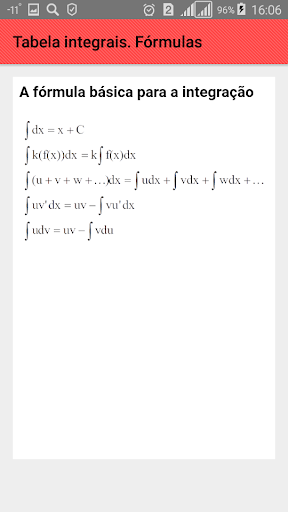 -11° 2 96% 16:06
Tabela integrais. Fórmulas
A fórmula básica para a integração
∫dx = x + C
∫k(f(x))dx = k∫f(x)dx
∫(u + v + w + ...)dx = ∫udx + ∫vdx + ∫wdx + ...
∫uv'dx = uv − ∫vu'dx
∫udv = uv − ∫vdu